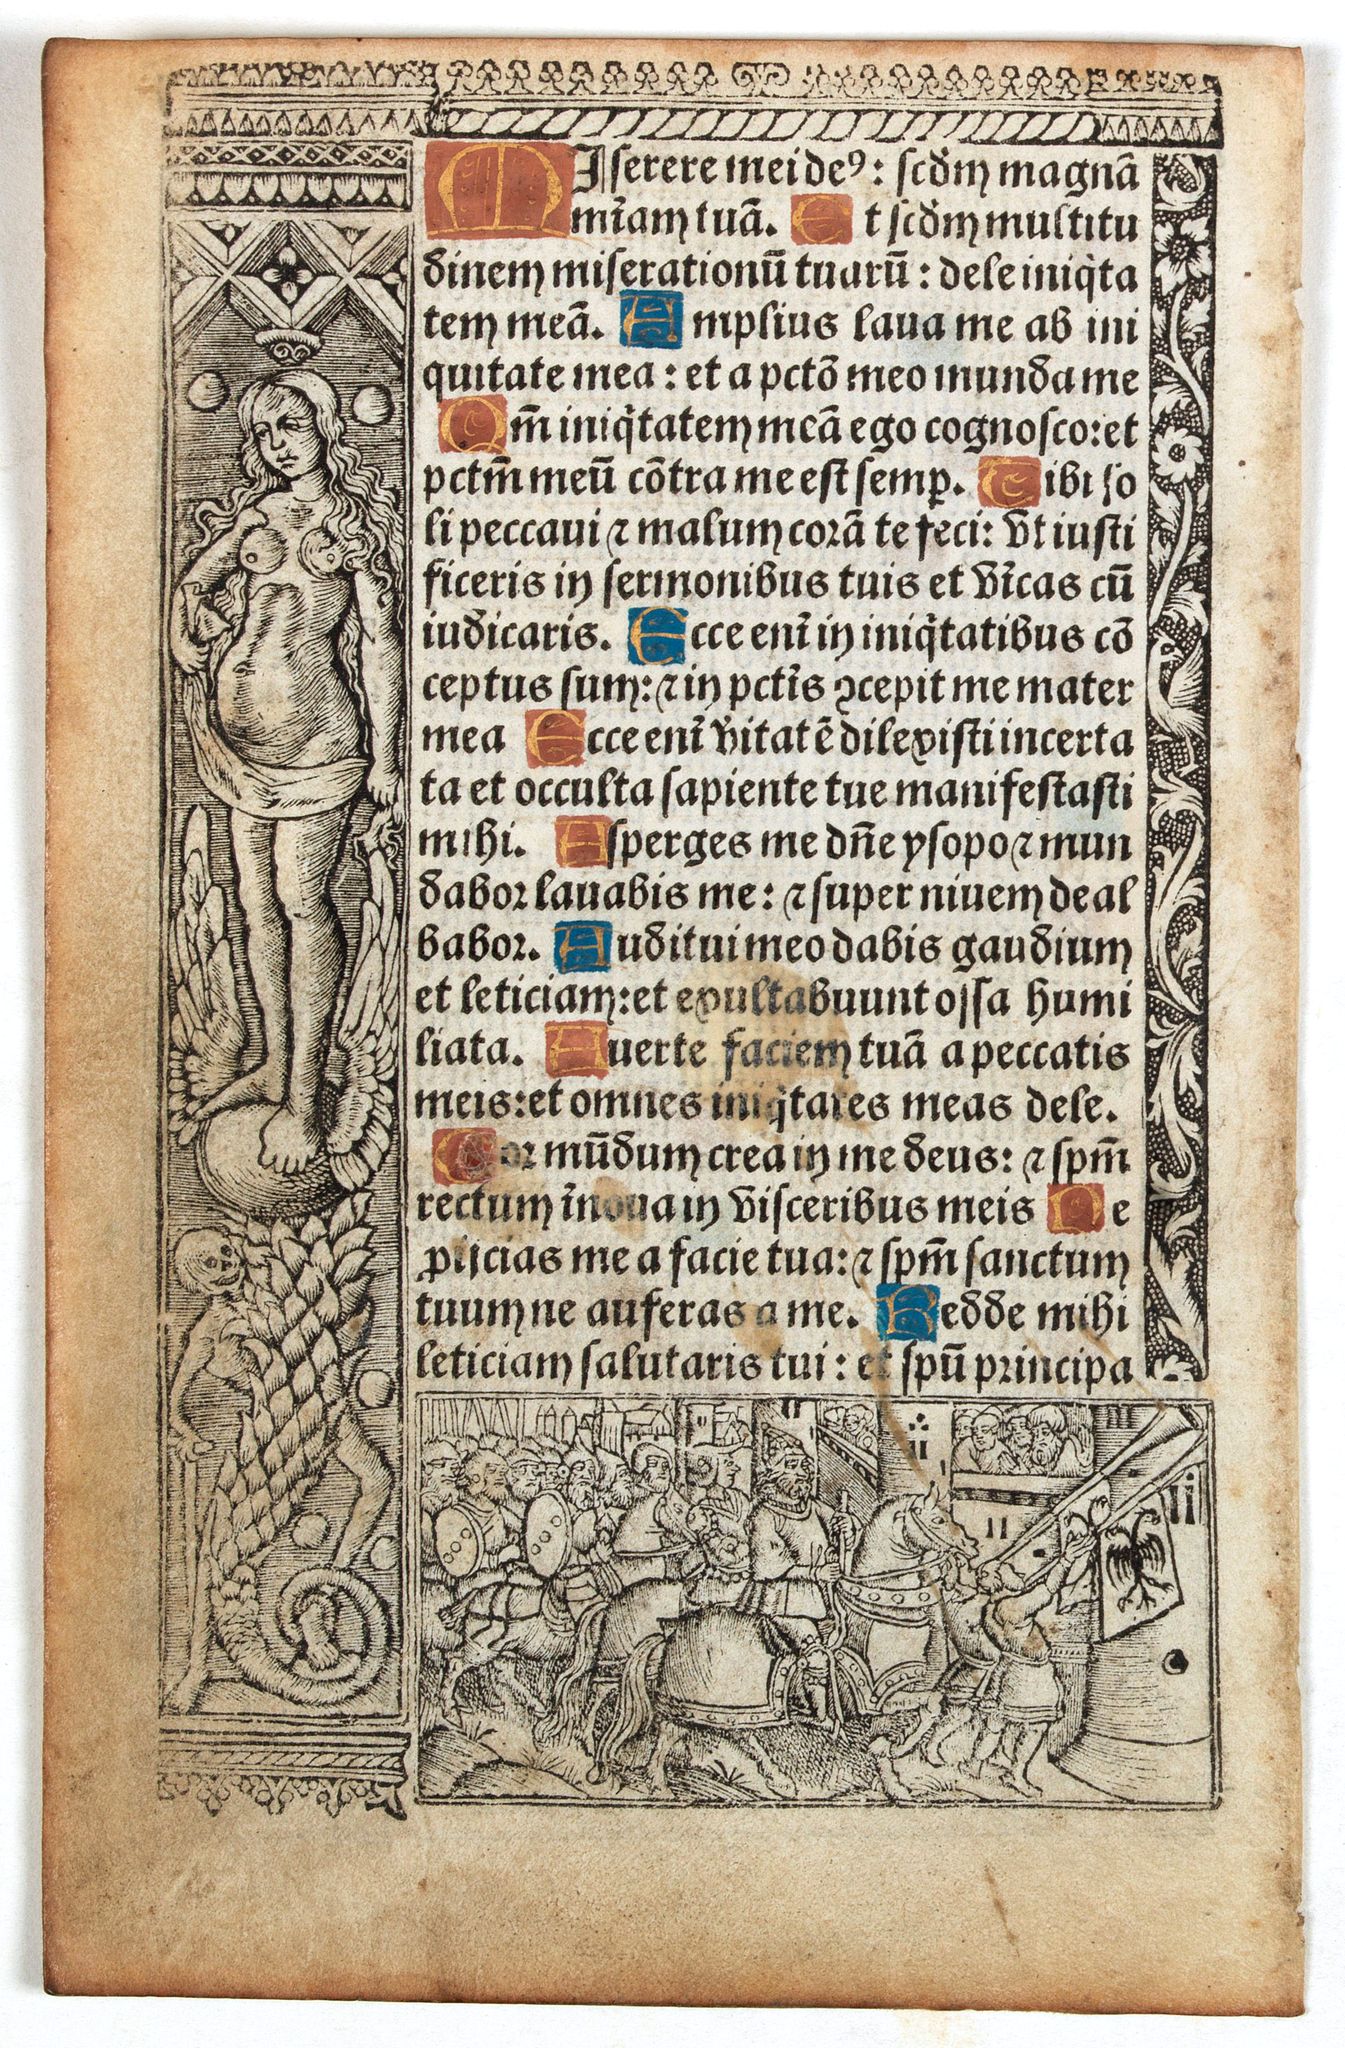 MIserere mei deꝰ: scd̄m magnā
mīam tuā. Et scd̄m multitu
dinem miserationū tuarū: dele iniq̄ta
tem meā. Amplius laua me ab ini
quitate mea: et a pctō meo munda me
Qm̄ iniq̄tatem meā ego cognosco: et
pctm̄ meū cōtra me est semp̱. Tibi so
li peccaui ⁊ malum corā te feci: vt iusti
ficeris in sermonibus tuis et vīcas cū
iudicaris. Ecce enī in iniq̄tatibus cō
ceptus sum: ⁊ in pctīs ꝯcepit me mater
mea Ecce enī v̄itatē dilexisti incerta
ta et occulta sapiente tue manifestasti
mihi. Asperges me dn̄e ysopo ⁊ mun
dabor lauabis me: ⁊ super niuem deal
babor. Auditui meo dabis gaudium
et leticiam: et exultabuunt ossa humi
liata. Auerte faciem tuā a peccatis
meis: et omnes iniq̄tates meas dele.
Cor mūdum crea in me deus: ⁊ spm̄
rectum īnoua in visceribus meis Ne
ꝓiicias me a facie tua: ⁊ spm̄ sanctum
tuum ne auferas a me. Redde mihi
leticiam salutaris tui: et spū principa